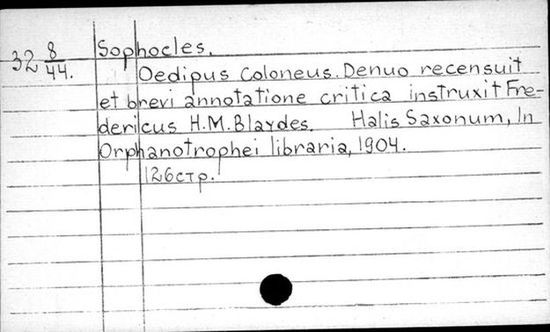 Sophocles.
32 8/44.
Oedipus Coloneus. Denuo recensuit
et brevi annotatione critica instruxit Fre-
dericus H.M.Blaydes. Halis Saxonum, In
Orphanotrophei libraria, 1904.
126стр.